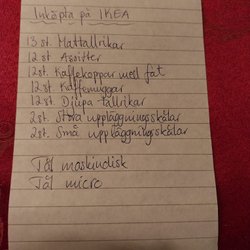 Inköpta på IKEA
13 st. Mattallrikar
12 st Assitter
12 st. Kaffekoppar med fat
12 st Kaffemuggar
12st. Djupa tallrikar
2st. Stora uppläggningsskålar
2st. Små uppläggningsskålar
Tål maskindisk
Tål micro